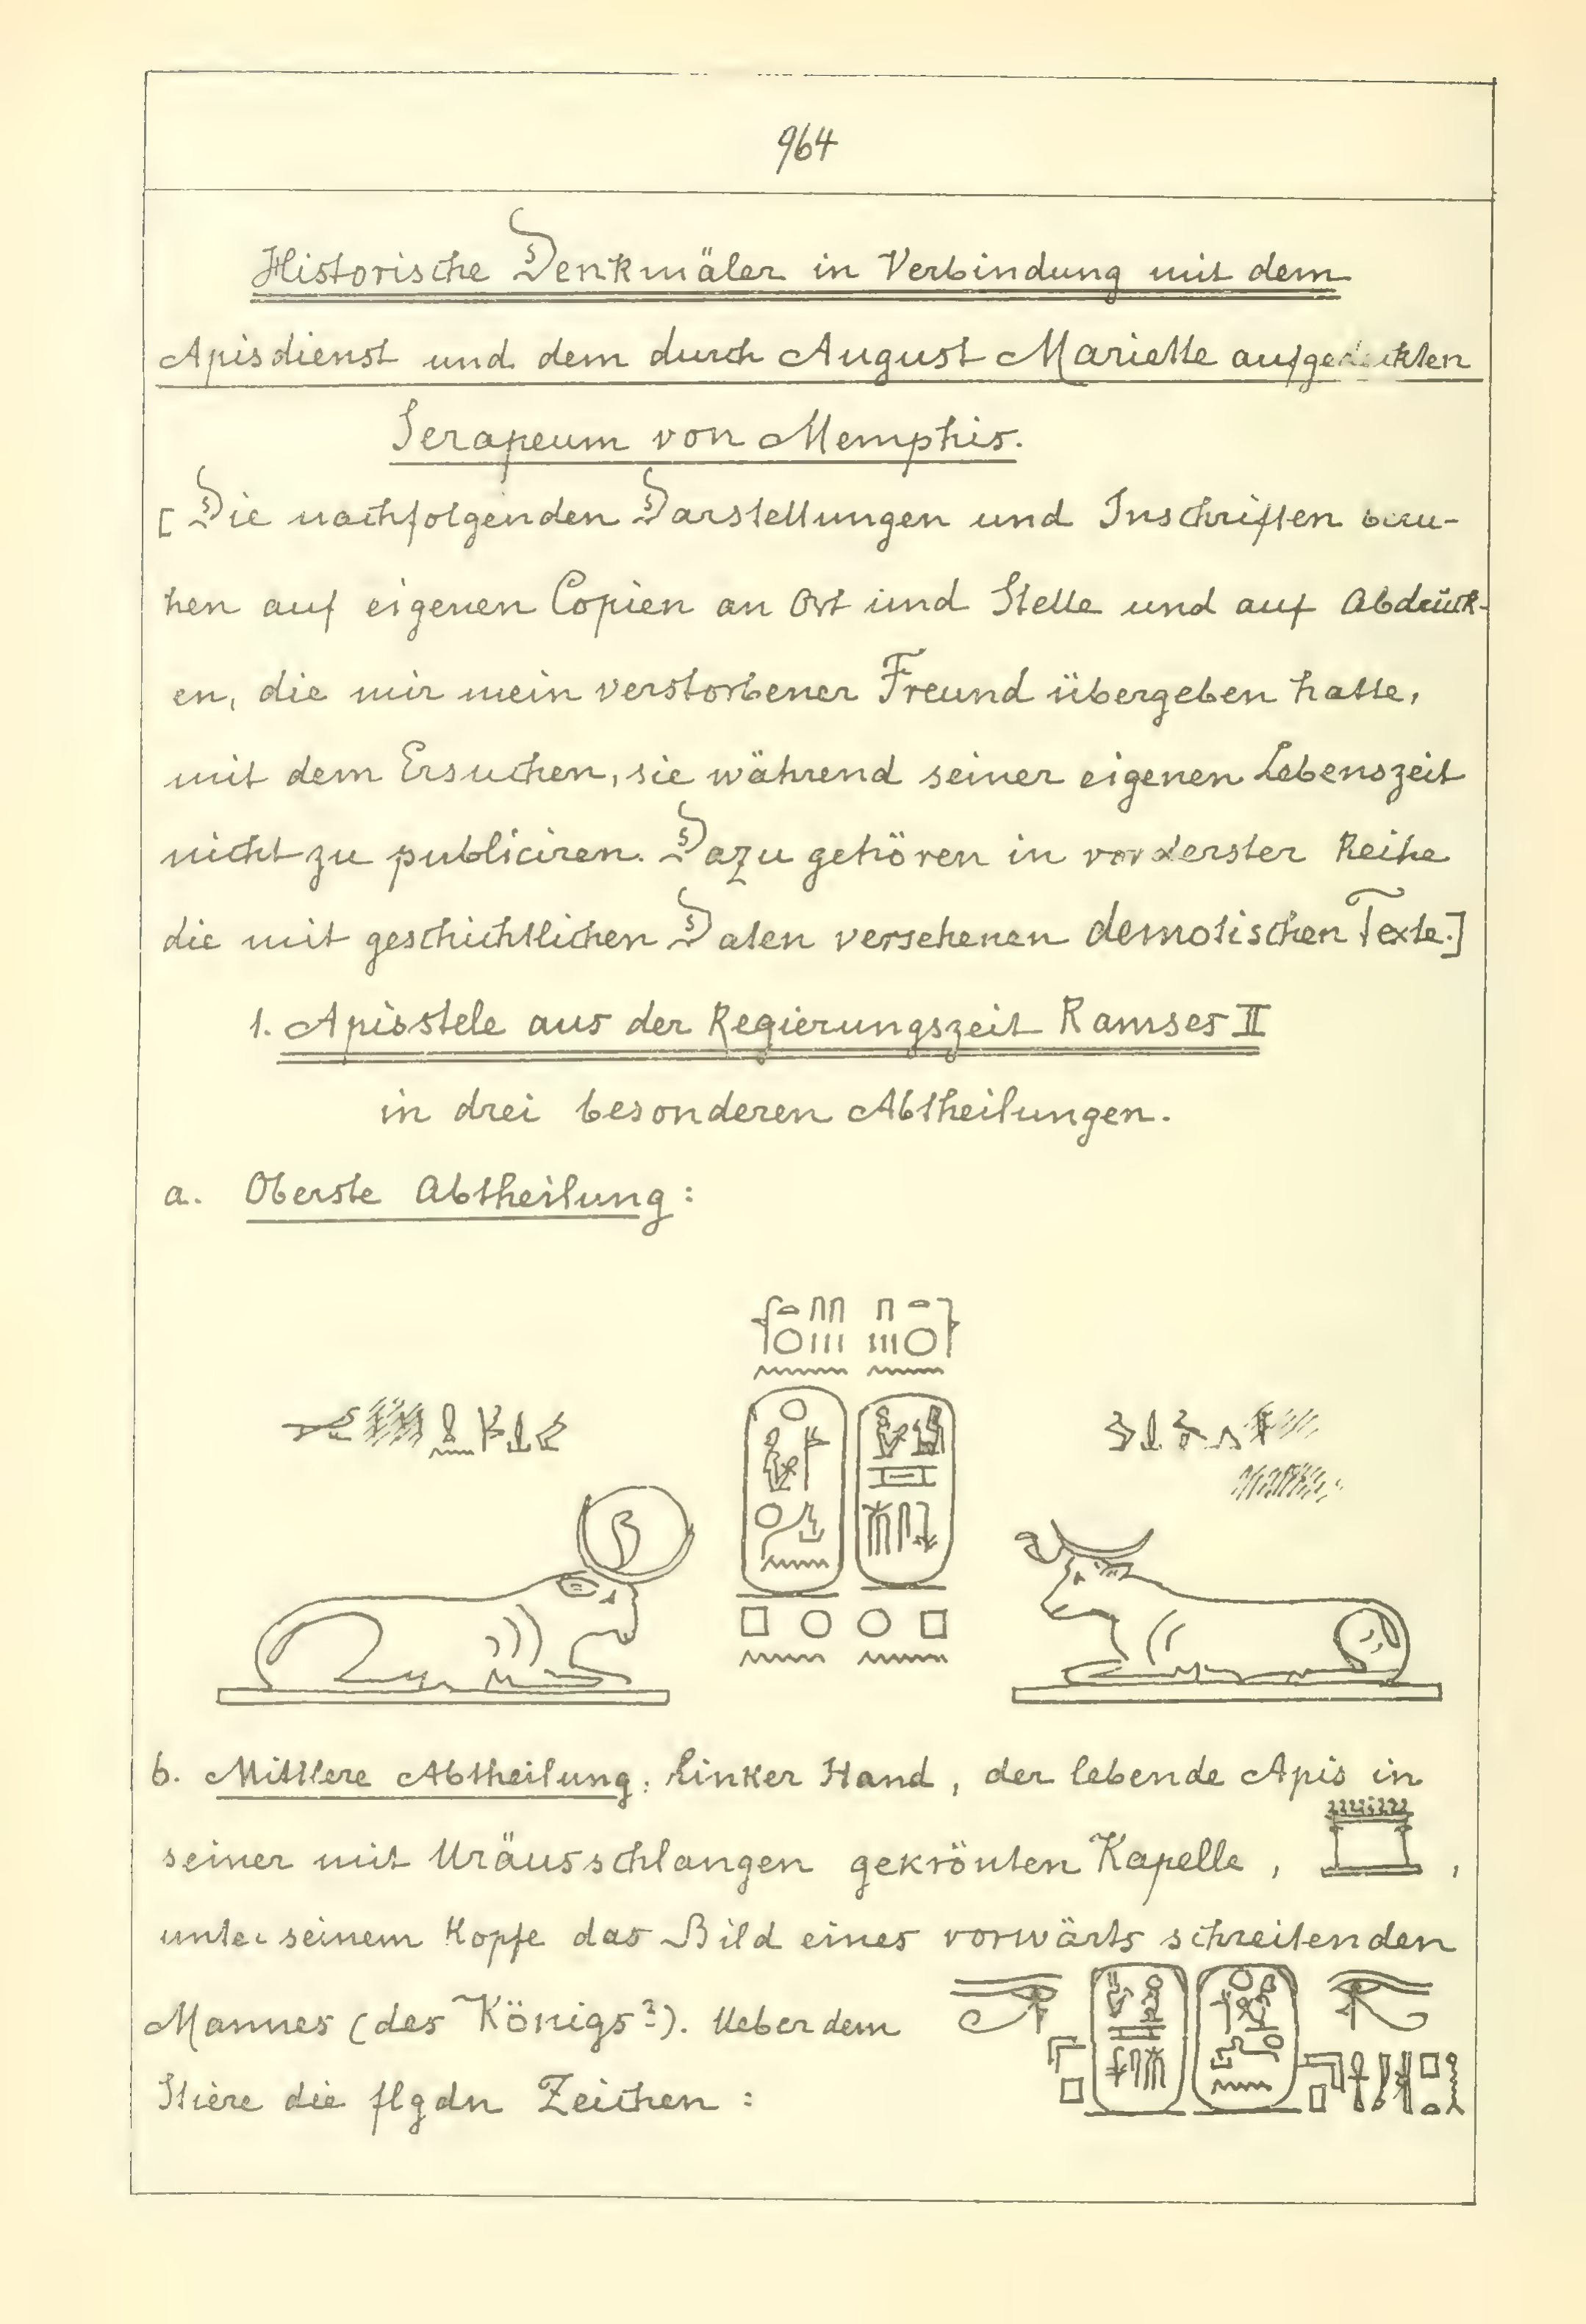 964
Historische Denkmäler in Verbindung mit dem
Apisdienst und dem durch August Mariette aufgedeckten
Serapeum von Memphis.
[Die nachfolgenden Darstellungen und Inschriften beru-
hen auf eigenen Copien an Ort und Stelle und auf Abdrück-
en, die mir mein verstorbener Freund übergeben hatte,
mit dem Ersuchen, sie während seiner eigenen Lebenszeit
nicht zu publiciren. Dazu gehören in vorderster Reihe
die mit geschichtlichen Daten versehenen demotischen Texte.]
1. Apisstele aus der Regierungszeit Ramses II
in drei besonderen Abtheilungen.
a. Oberste Abtheilung:
b. Mittlere Abtheilung: linker Hand, der lebende Apis in
seiner mit Uräusschlangen gekrönten Kapelle, ,
unter seinem Kopfe das Bild eines vorwärts schreitenden
Mannes (des Königs?). Ueber dem
Stiere die flgdn Zeichen: